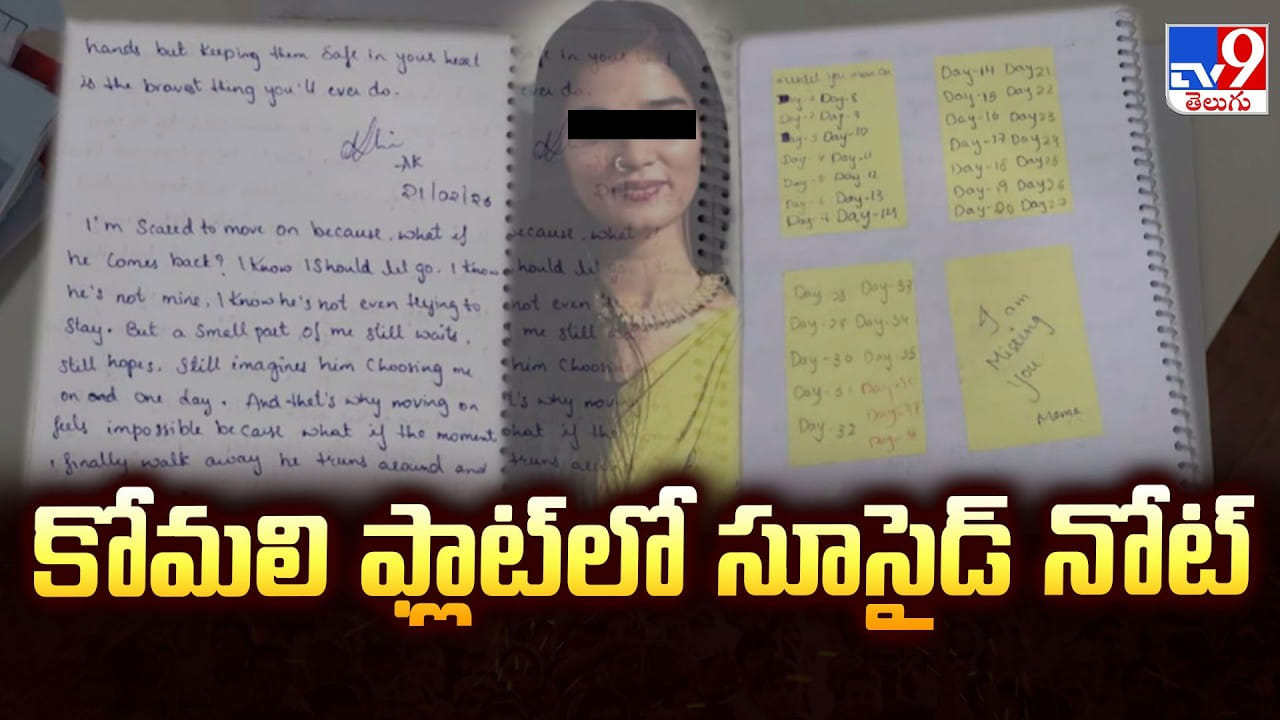 hands but keeping them safe in your heart
is the bravest thing you'll ever do.
-AK
21/02/26
I'm Scared to move on because, what if
he comes back? I know I should let go. I know
he's not mine, I know he's not even trying to
stay. But a small part of me still waits,
still hopes. Still imagines him choosing me
on and one day. And that's why moving on
feels impossible because what if the moment
I finally walk away he truns around and
until you move on
Day-8
Day-2 Day-9
Day-3 Day-10
Day-4 Day-11
Day-5 Day-12
Day-6 Day-13
Day-7 Day-14
Day-14 Day 21
Day-15 Day 22
Day-16 Day 23
Day-17 Day 24
Day-18 Day 25
Day-19 Day 26
Day-20 Day 27
Day-33
Day-34
Day-30 Day-35
Day-31
Day-32 Day-37
I am
Missing
You
Mama
TV9
తెలుగు
కోమలి ఫ్లాట్‌లో సూసైడ్ నోట్